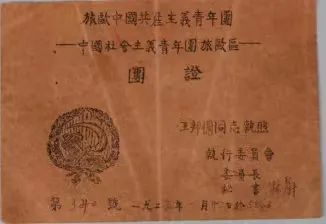 旅歐中國共產主義青年團
—中國社會主義青年團旅歐區—
團證
同志執照
執行委員會
委員長
秘書
第 號 一九二 年 月